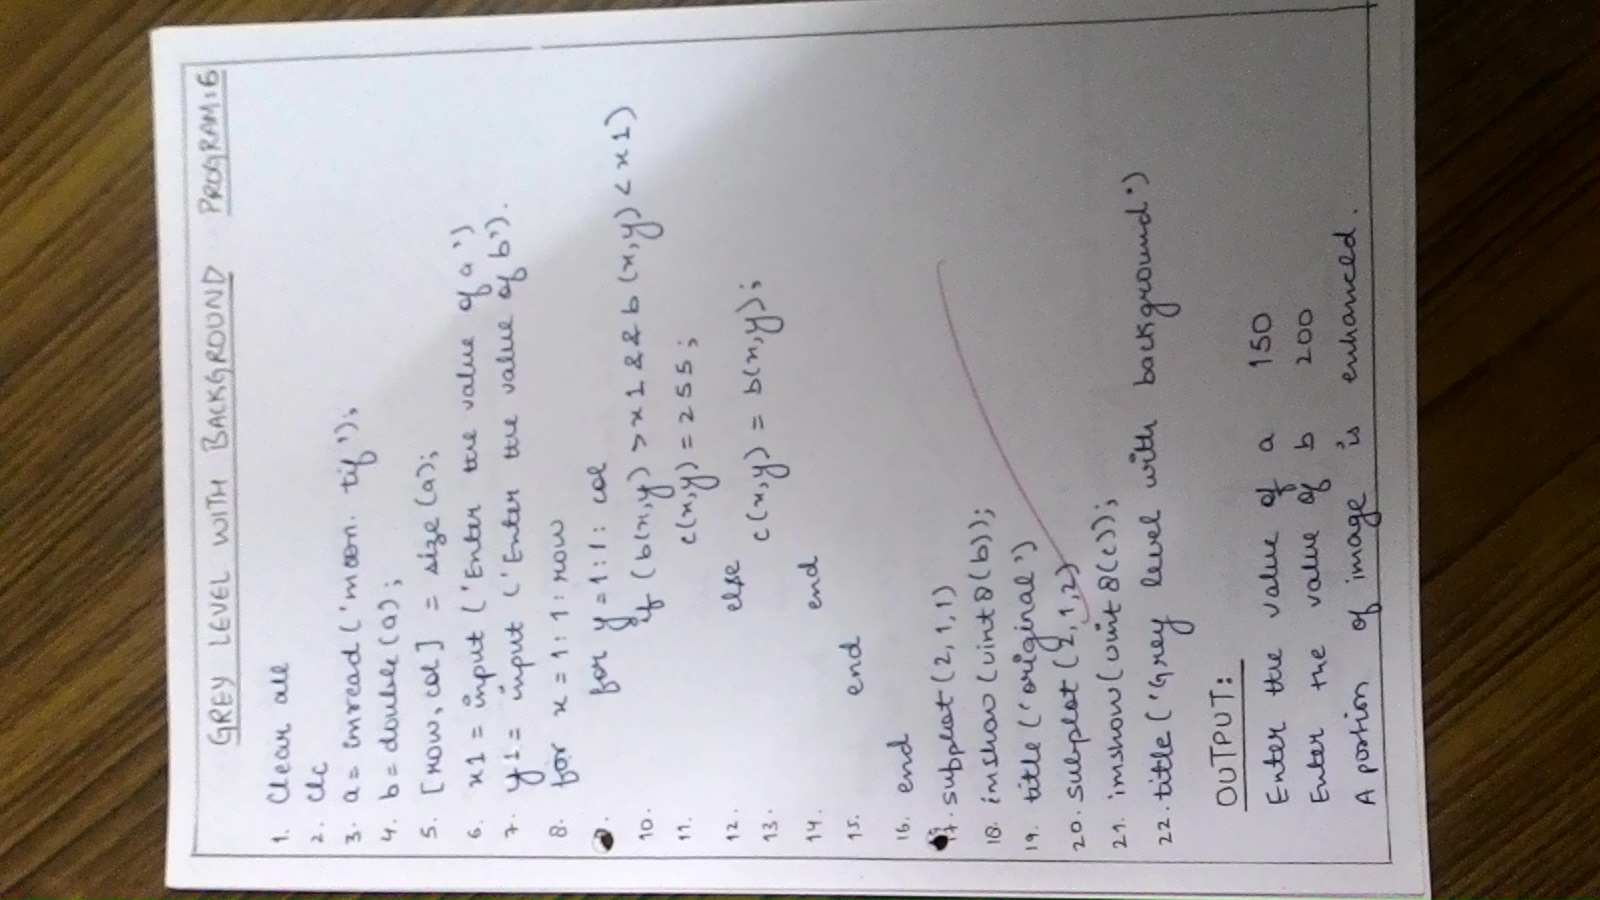 GREY LEVEL WITH BACKGROUND PROGRAM:6
1. Clear all
2. clc
3. a = imread ('moon. tif');
4. b = double (a);
5. [row, col] = size (a);
6. x1 = input ('Enter the value of a')
7. y1 = input ('Enter the value of b').
8. for x = 1:1: row
for y = 1:1: col
10. if (b(x,y) > x1 && b(x,y) < x1)
11. c(x,y) = 255;
12. else
13. c(x,y) = b(x,y);
14. end
15. end
16. end
17. subplot (2,1,1)
18. imshow (uint8(b));
19. title ('original')
20. subplot (2,1,2)
21. imshow (uint8(c));
22. title ('Grey level with background')
OUTPUT:
Enter the value of a 150
Enter the value of b 200
A portion of image is enhanced.